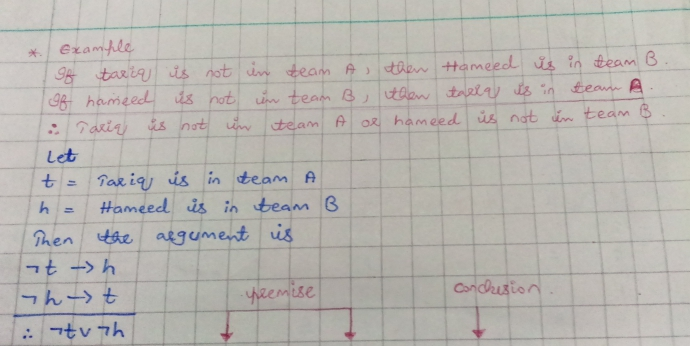 * Example
If tariq is not in team A, then Hameed is in team B.
If hameed is not in team B, then tariq is in team A.
∴ Tariq is not in team A or hameed is not in team B.
Let
t = Tariq is in team A
h = Hameed is in team B
Then the argument is
¬t → h
¬h → t
premise conclusion.
∴ ¬t ∨ ¬h